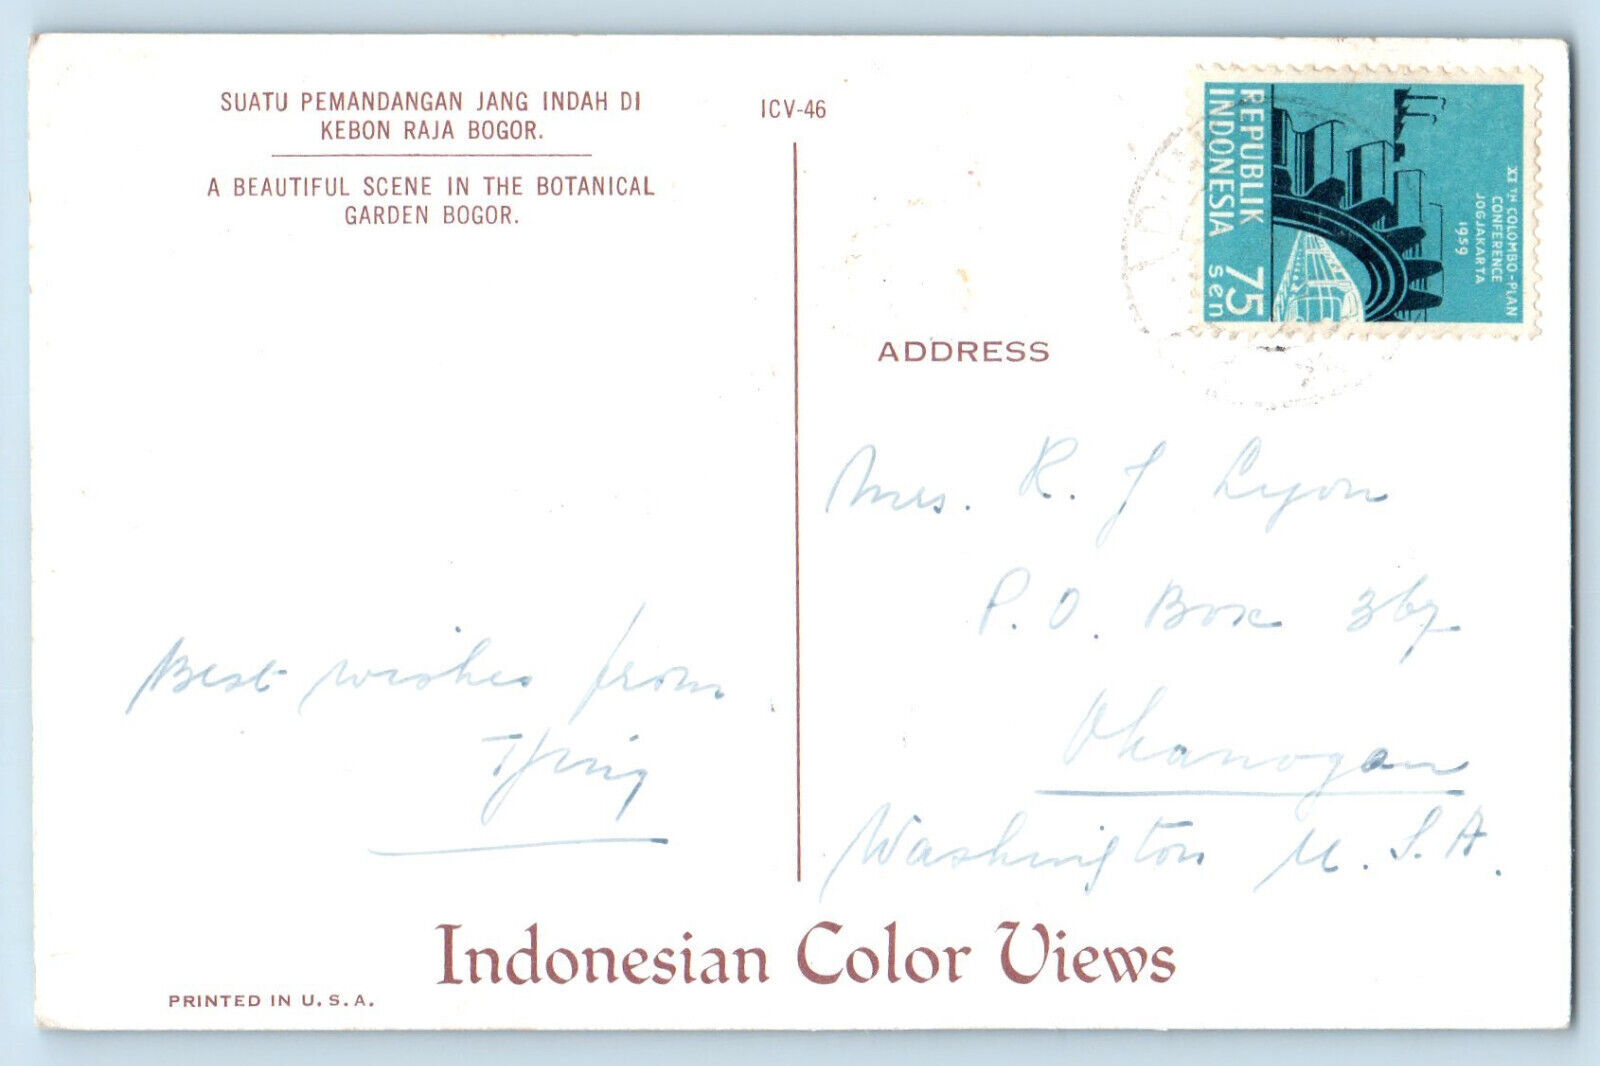 SUATU PEMANDANGAN JANG INDAH DI
KEBON RAJA BOGOR.
A BEAUTIFUL SCENE IN THE BOTANICAL
GARDEN BOGOR.
ICV-46
REPUBLIK
INDONESIA
75
sen
XI TH COLOMBO-PLAN
CONFERENCE
JOGJAKARTA
1959
ADDRESS
Mrs. R. J Lyon
P.O. Box 367
Okanogan
Washington U.S.A.
Best wishes from
Tjing
Indonesian Color Views
PRINTED IN U.S.A.